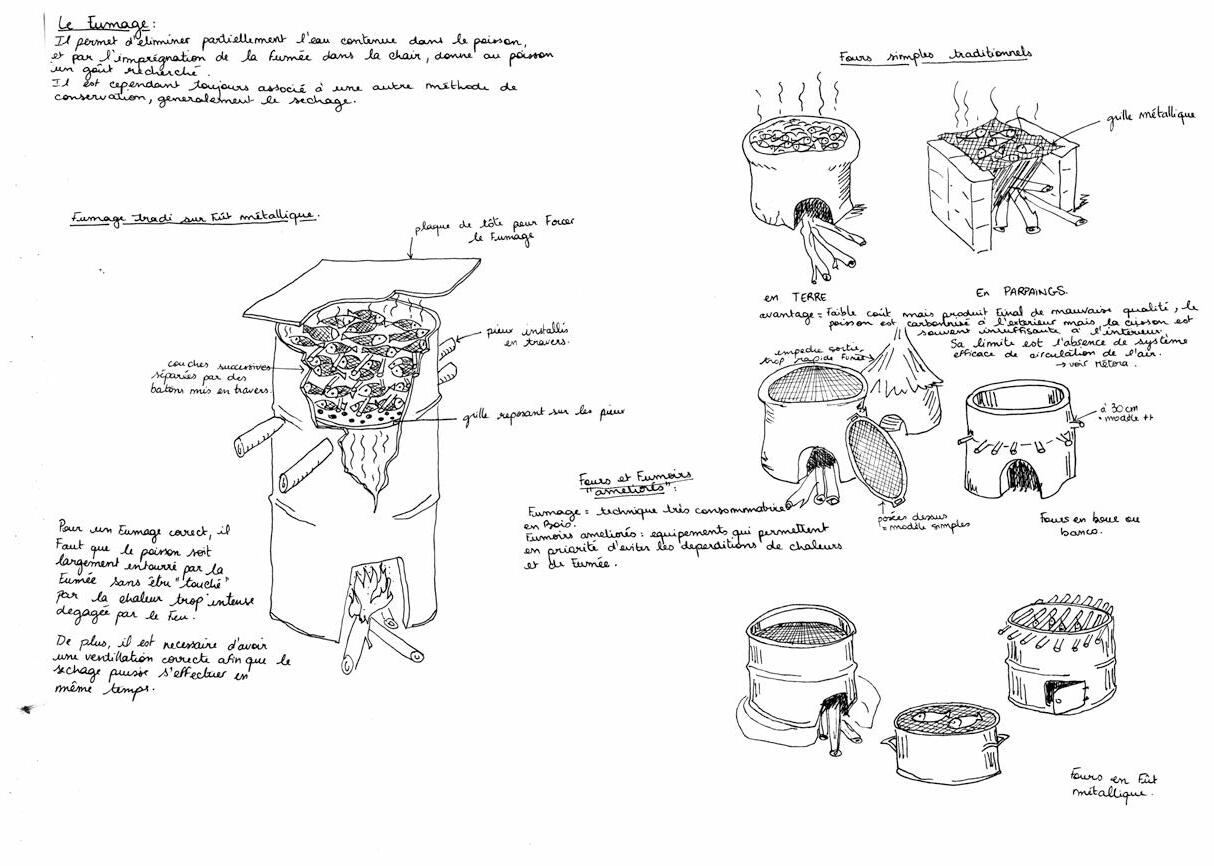 Le Fumage:
Il permet d'éliminer partiellement l'eau contenue dans le poisson,
et par l'imprégnation de la fumée dans la chair, donne au poisson
un goût recherché.
Il est cependant toujours associé à une autre méthode de
conservation, generalement le sechage.
Fumage tradi sur Fût métallique.
plaque de tôle pour Forcer
le Fumage
pieux installés
en travers.
couches successives
séparées par des
batons mis en travers.
grille reposant sur les pieux
Pour un Fumage correct, il
Faut que le poisson soit
largement entourré par la
Fumée sans être "touché"
par la chaleur trop intense
degagée par le Feu.
De plus, il est necessaire d'avoir
une ventillation correcte afin que le
sechage puisse s'effectuer en
même temps.
Fours simples traditionnels
grille métallique
en TERRE
En PARPAINGS.
avantage = Faible coût mais produit Final de mauvaise qualité, le
poisson est carbonnisé à l'exterieur mais la cuisson est
souvent insuffisante à l'interieur.
Sa limite est l'absence de système
efficace de circulation de l'air.
→ voir Métora.
empeche sortie
trop rapide Fumée
à 30 cm
= modèle ++
posées dessus
= modèle simples
Fours en boue ou
banco.
Fours et Fumoirs
"ameliorés":
Fumage = technique très consommatrice
en Bois.
Fumoirs ameliorés: equipements qui permettent
en priorité d'eviter les deperditions de chaleurs
et de Fumée.
Fours en Fût
métallique.